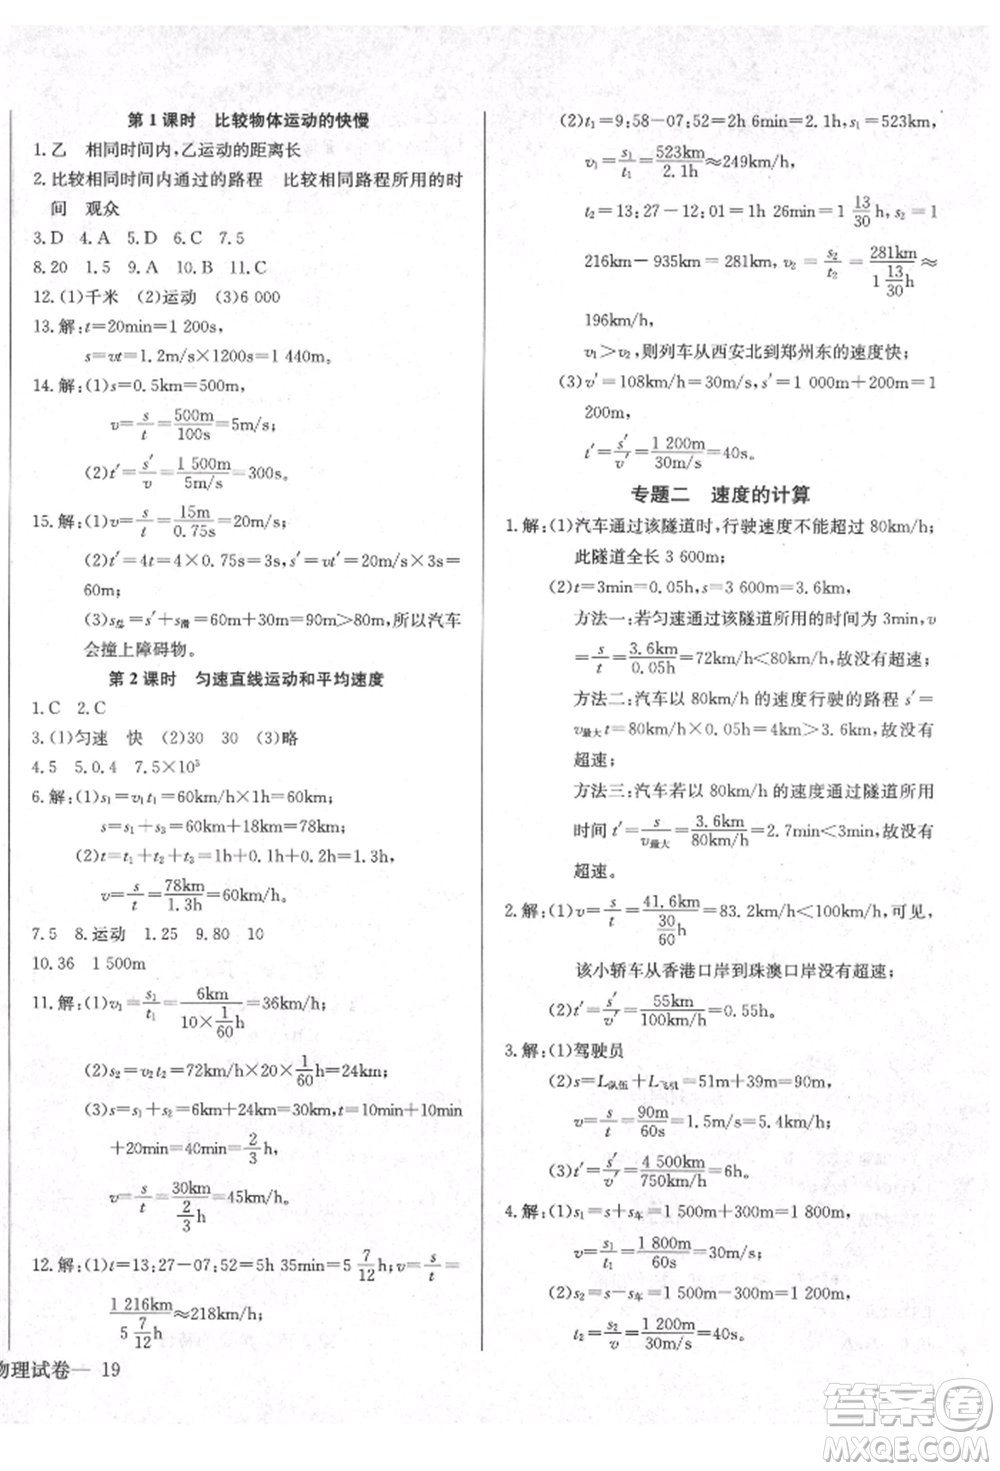 第1课时　比较物体运动的快慢
1.乙　相同时间内,乙运动的距离长
2.比较相同时间内通过的路程　比较相同路程所用的时
间　观众
3.D　4.A　5.D　6.C　7.5
8.20　1.5　9.A　10.B　11.C
12.(1)千米　(2)运动　(3)6 000
13.解:t=20min=1 200s,
s=vt=1.2m/s×1200s=1 440m。
14.解:(1)s=0.5km=500m,
v=s/t=500m/100s=5m/s;
(2)t′=s′/v=1 500m/5m/s=300s。
15.解:(1)v=s/t=15m/0.75s=20m/s;
(2)t′=4t=4×0.75s=3s,s′=vt′=20m/s×3s=
60m;
(3)s总=s′+s滑=60m+30m=90m>80m,所以汽车
会撞上障碍物。
第2课时　匀速直线运动和平均速度
1.C　2.C
3.(1)匀速　快　(2)30　30　(3)略
4.5　5.0.4　7.5×10³
6.解:(1)s₁=v₁t₁=60km/h×1h=60km,
s=s₁+s₃=60km+18km=78km;
(2)t=t₁+t₂+t₃=1h+0.3h=1.3h,
v=s/t=78km/1.3h=60km/h。
7.5　8.运动　1.25　9.80　10
10.36　1 500m
11.解:(1)v₁=s₁/t₁=6km/(10×1/60h)=36km/h;
(2)s₂=v₂t₂=72km/h×20×1/60h=24km;
(3)s=s₁+s₂=6km+24km=30km,t=10min+10min
+20min=40min=2/3h,
v=s/t=30km/(2/3h)=45km/h。
12.解:(1)t=13:27-07:52=5h 35min=5 7/12h;v=s/t=
1 216km/(5 7/12h)≈218km/h;
物理试卷— 19
(2)t₁=9:58-07:52=2h 6min=2.1h,s₁=523km,
v₁=s₁/t₁=523km/2.1h≈249km/h;
t₂=13:27-12:01=1h 26min=1 13/30h,s₂=1
216km-935km=281km,v₂=s₂/t₂=281km/(1 13/30h)≈
196km/h
v₁>v₂,则列车从西安北到郑州东的速度快;
(3)v′=108km/h=30m/s,s′=1 000m+200m=1
200m,
t′=s′/v′=1 200m/30m/s=40s。
专题二　速度的计算
1.解:(1)汽车通过该隧道时,行驶速度不能超过80km/h;
此隧道全长3 600m;
(2)t=3min=0.05h,s=3 600m=3.6km,
方法一:若匀速通过该隧道所用的时间为3min,v
=s/t=3.6km/0.05h=72km/h<80km/h,故没有超速;
方法二:汽车以80km/h的速度行驶的路程s′=
v最大t=80km/h×0.05h=4km>3.6km,故没有
超速;
方法三:汽车以80km/h的速度通过隧道所用
时间t′=s/v最大=3.6km/80km/h=2.7min<3min,故没有
超速。
2.解:(1)v=s/t=41.6km/(30/60h)=83.2km/h<100km/h,可见,
该小轿车从香港口岸到珠澳口岸没有超速;
(2)t′=s′/v′=55km/100km/h=0.55h。
3.解:(1)驾驶员
(2)s=L队伍+L飞机=51m+39m=90m,
v=s/t=90m/60s=1.5m/s=5.4km/h;
(3)t′=s′/v′=4 500km/750km/h=6h。
4.解:(1)s₁=s+s车=1 500m+300m=1 800m,
v=s₁/t₁=1 800m/60s=30m/s;
(2)s₂=s-s车=1 500m-300m=1 200m,
t₂=s₂/v=1 200m/30m/s=40s。
答案圈
MXQE.COM